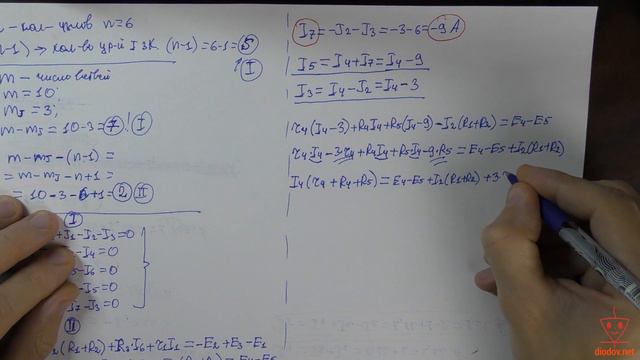 кол. узлов n=6
n-1) → кол-во ур-й I ЗК (n-1)=6-1=5
I
m - число ветвей
m=10;
mJ=3;
m-mJ=10-3=7! I
m-mJ-(n-1)=
=m-mJ-n+1=
=10-3-6+1=2 II
I
+I1-I2-I3=0
-I4=0
-I6=0
-I5=0
I7-I3=0
II
2(R1+R2)+R3I6+r1I1=-E2+E3-E1
I7=-J2-J3=-3-6=-9A
I5=I4+I7=I4-9
I3=I4-J2=I4-3
r4(I4-3)+R4I4+R5(I4-9)-I2(R1+R2)=E4-E5
r4I4-3·r4+R4I4+R5I4-9·R5=E4-E5+I2(R1+R2)
I4(r4+R4+R5)=E4-E5+I2(R1+R2)+3
diodov.net